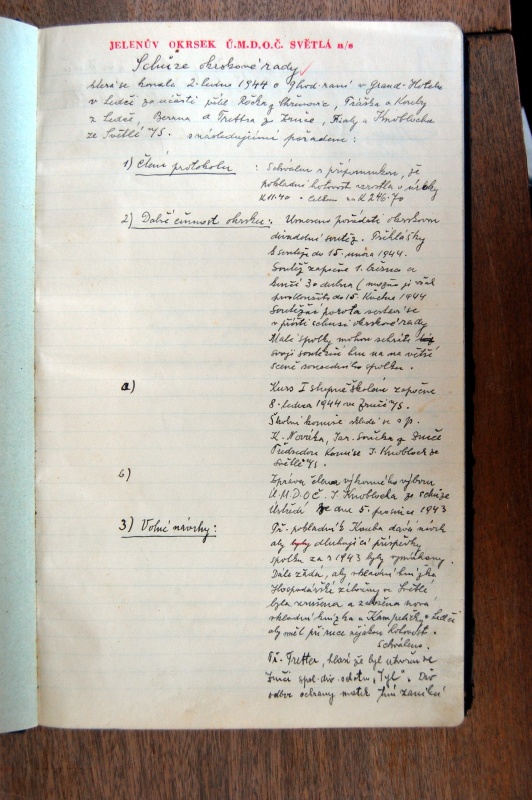 JELENŮV OKRSEK Ú.M.D.O.Č. SVĚTLÁ n/s
Schůze okrskové rady
která se konala 2. ledna 1944 o 9 hod. ranní v Grand-Hotelu
v Ledči za účasti přátel Ročka z Vtizenovic, Práška a Kouby
z Ledče, Berana a Trettra z Zruče, Fialy a Knoblocha
ze Světlé n/S. s následujícím pořadem:
1) Čtení protokolu : Schválen s připomínkou, že
pokladní hotovost vzrostla o úroky
K 11.40 celkem na K 246.70
2) Další činnost okrsku: Usneseno pořádati okrskovou
divadelní soutěž. Přihlášky
k soutěži do 15. února 1944.
Soutěž započne 1. března a
končí 30 dubna (možno ji však
prodloužiti do 15. května 1944
Soutěžní porota sestaví se
v příští schůzi okrskové rady
Malé spolky mohou sehráti
svoji soutěžní hru na na větší
scéně sousedního spolku.
a) Kurs I stupně školení započne
8. ledna 1944 ve Zruči n/S.
Školní komise skládá se z p.
K. Nováka, Jar. Součka z Zruče
Předsedou komise J. Knobloch ze
Světlé n/S.
b) Zpráva člena výkonného výboru
Ú.M.D.O.Č. J. Knoblocha ze schůze
Ústředí ze dne 5. prosince 1943
3) Volné návrhy: Př. pokladník Kouba dává návrh
aby byly dlužující příspěvky
spolků za r 1943 byly vymáhány.
Dále žádá, aby vkladní knížka
Hospodářské záložny ve Světlé
byla zrušena a založena nová
vkladní knížka u Kampeličky v Ledči
aby měl při ruce nějakou hotovost.
Schváleno.
Př. Tretter, hlásí že byl utvořen ve
Zruči spol. div. ochotn. "Tyl". Div
odbor ochrany matek tím zaniká